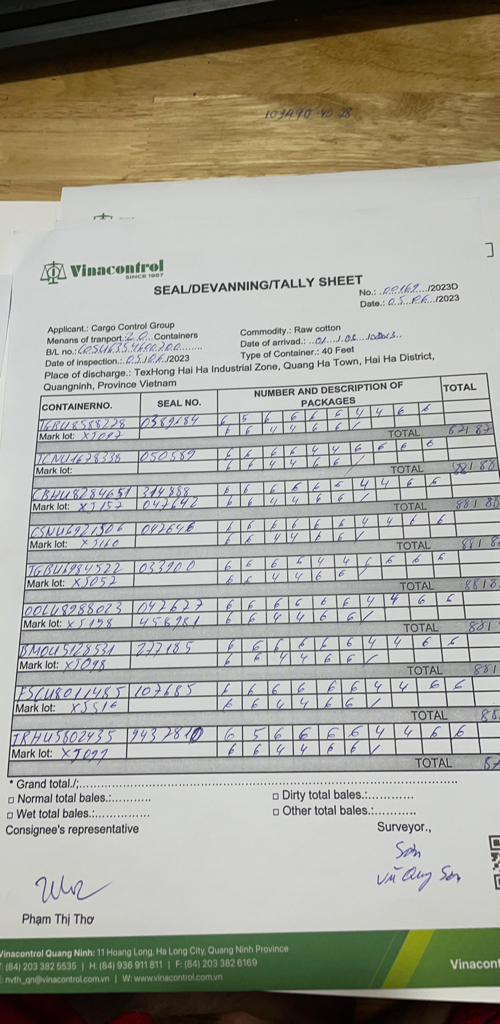 Vinacontrol
SINCE 1957
SEAL/DEVANNING/TALLY SHEET
No.: 00169 /2023D
Date.: 05.06 /2023
Applicant.: Cargo Control Group
Menans of tranport: 20 Containers
Commodity.: Raw cotton
B/L no.:
Date of arrival.:
Date of inspection.: 05.06/2023
Type of Container.: 40 Feet
Place of discharge.: TexHong Hai Ha Industrial Zone, Quang Ha Town, Hai Ha District,
Quangninh, Province Vietnam
CONTAINERNO. SEAL NO. NUMBER AND DESCRIPTION OF PACKAGES TOTAL
TGBU8588228 0389684 6 5 6 6 6 6 4 4 6 6
Mark lot: XJ097 6 6 4 4 6 6 /
TOTAL 87
TCNU1678338 050589 6 6 6 6 4 4 6 6 6 6
Mark lot: 6 6 4 4 6 6 /
TOTAL 88
CBHU8284651 314888 6 6 6 6 6 6 4 4 6 6
Mark lot: XJ157 047642 6 6 4 4 6 6 /
TOTAL 88
CSNU6921506 047646 6 6 6 6 6 6 4 4 6 6
Mark lot: XJ160 6 6 4 4 6 6 /
TOTAL 88
TGBU6984522 033900 6 6 6 6 4 4 6 6 6 6
Mark lot: XJ052 6 6 4 4 6 6 /
TOTAL 88
OOLU8988023 042627 6 6 6 6 6 6 4 4 6 6
Mark lot: XJ158 458981 6 6 4 4 6 6 /
TOTAL 88
BMOU5128531 277185 6 6 6 6 6 6 4 4 6 6
Mark lot: XJ098 6 6 4 4 6 6 /
TOTAL 88
FSCU8011485 107685 6 6 6 6 6 6 4 4 6 6
Mark lot: XJ516 6 6 4 4 6 6 /
TOTAL 88
TRHU5802435 9437810 6 5 6 6 6 6 4 4 6 6
Mark lot: XJ097 6 6 4 4 6 6 /
TOTAL 87
* Grand total./;
□ Normal total bales.:
□ Dirty total bales.:
□ Wet total bales.:
□ Other total bales.:
Consignee's representative
Surveyor.,
Sơn
Vũ Quy Sơn
Phạm Thị Thơ
Vinacontrol Quang Ninh: 11 Hoang Long, Ha Long City, Quang Ninh Province
T: (84) 203 382 5535 | H: (84) 936 911 811 | F: (84) 203 382 6169
E: nvth_qn@vinacontrol.com.vn | W: www.vinacontrol.com.vn
Vinacont